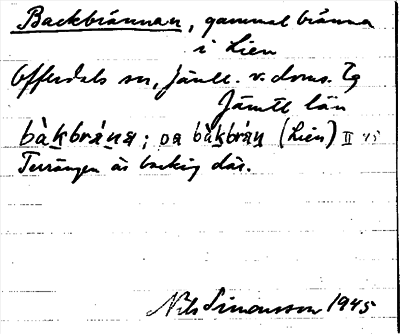 Backbrännan, gammal bränna
i Lien
Offerdals sn, Jämtl. v. doms. Tg
Jämtl län
bàkbrána; pa bàkbrán (Lien) II 45
Terrängen är backig där.
Nils Simonsson 1945